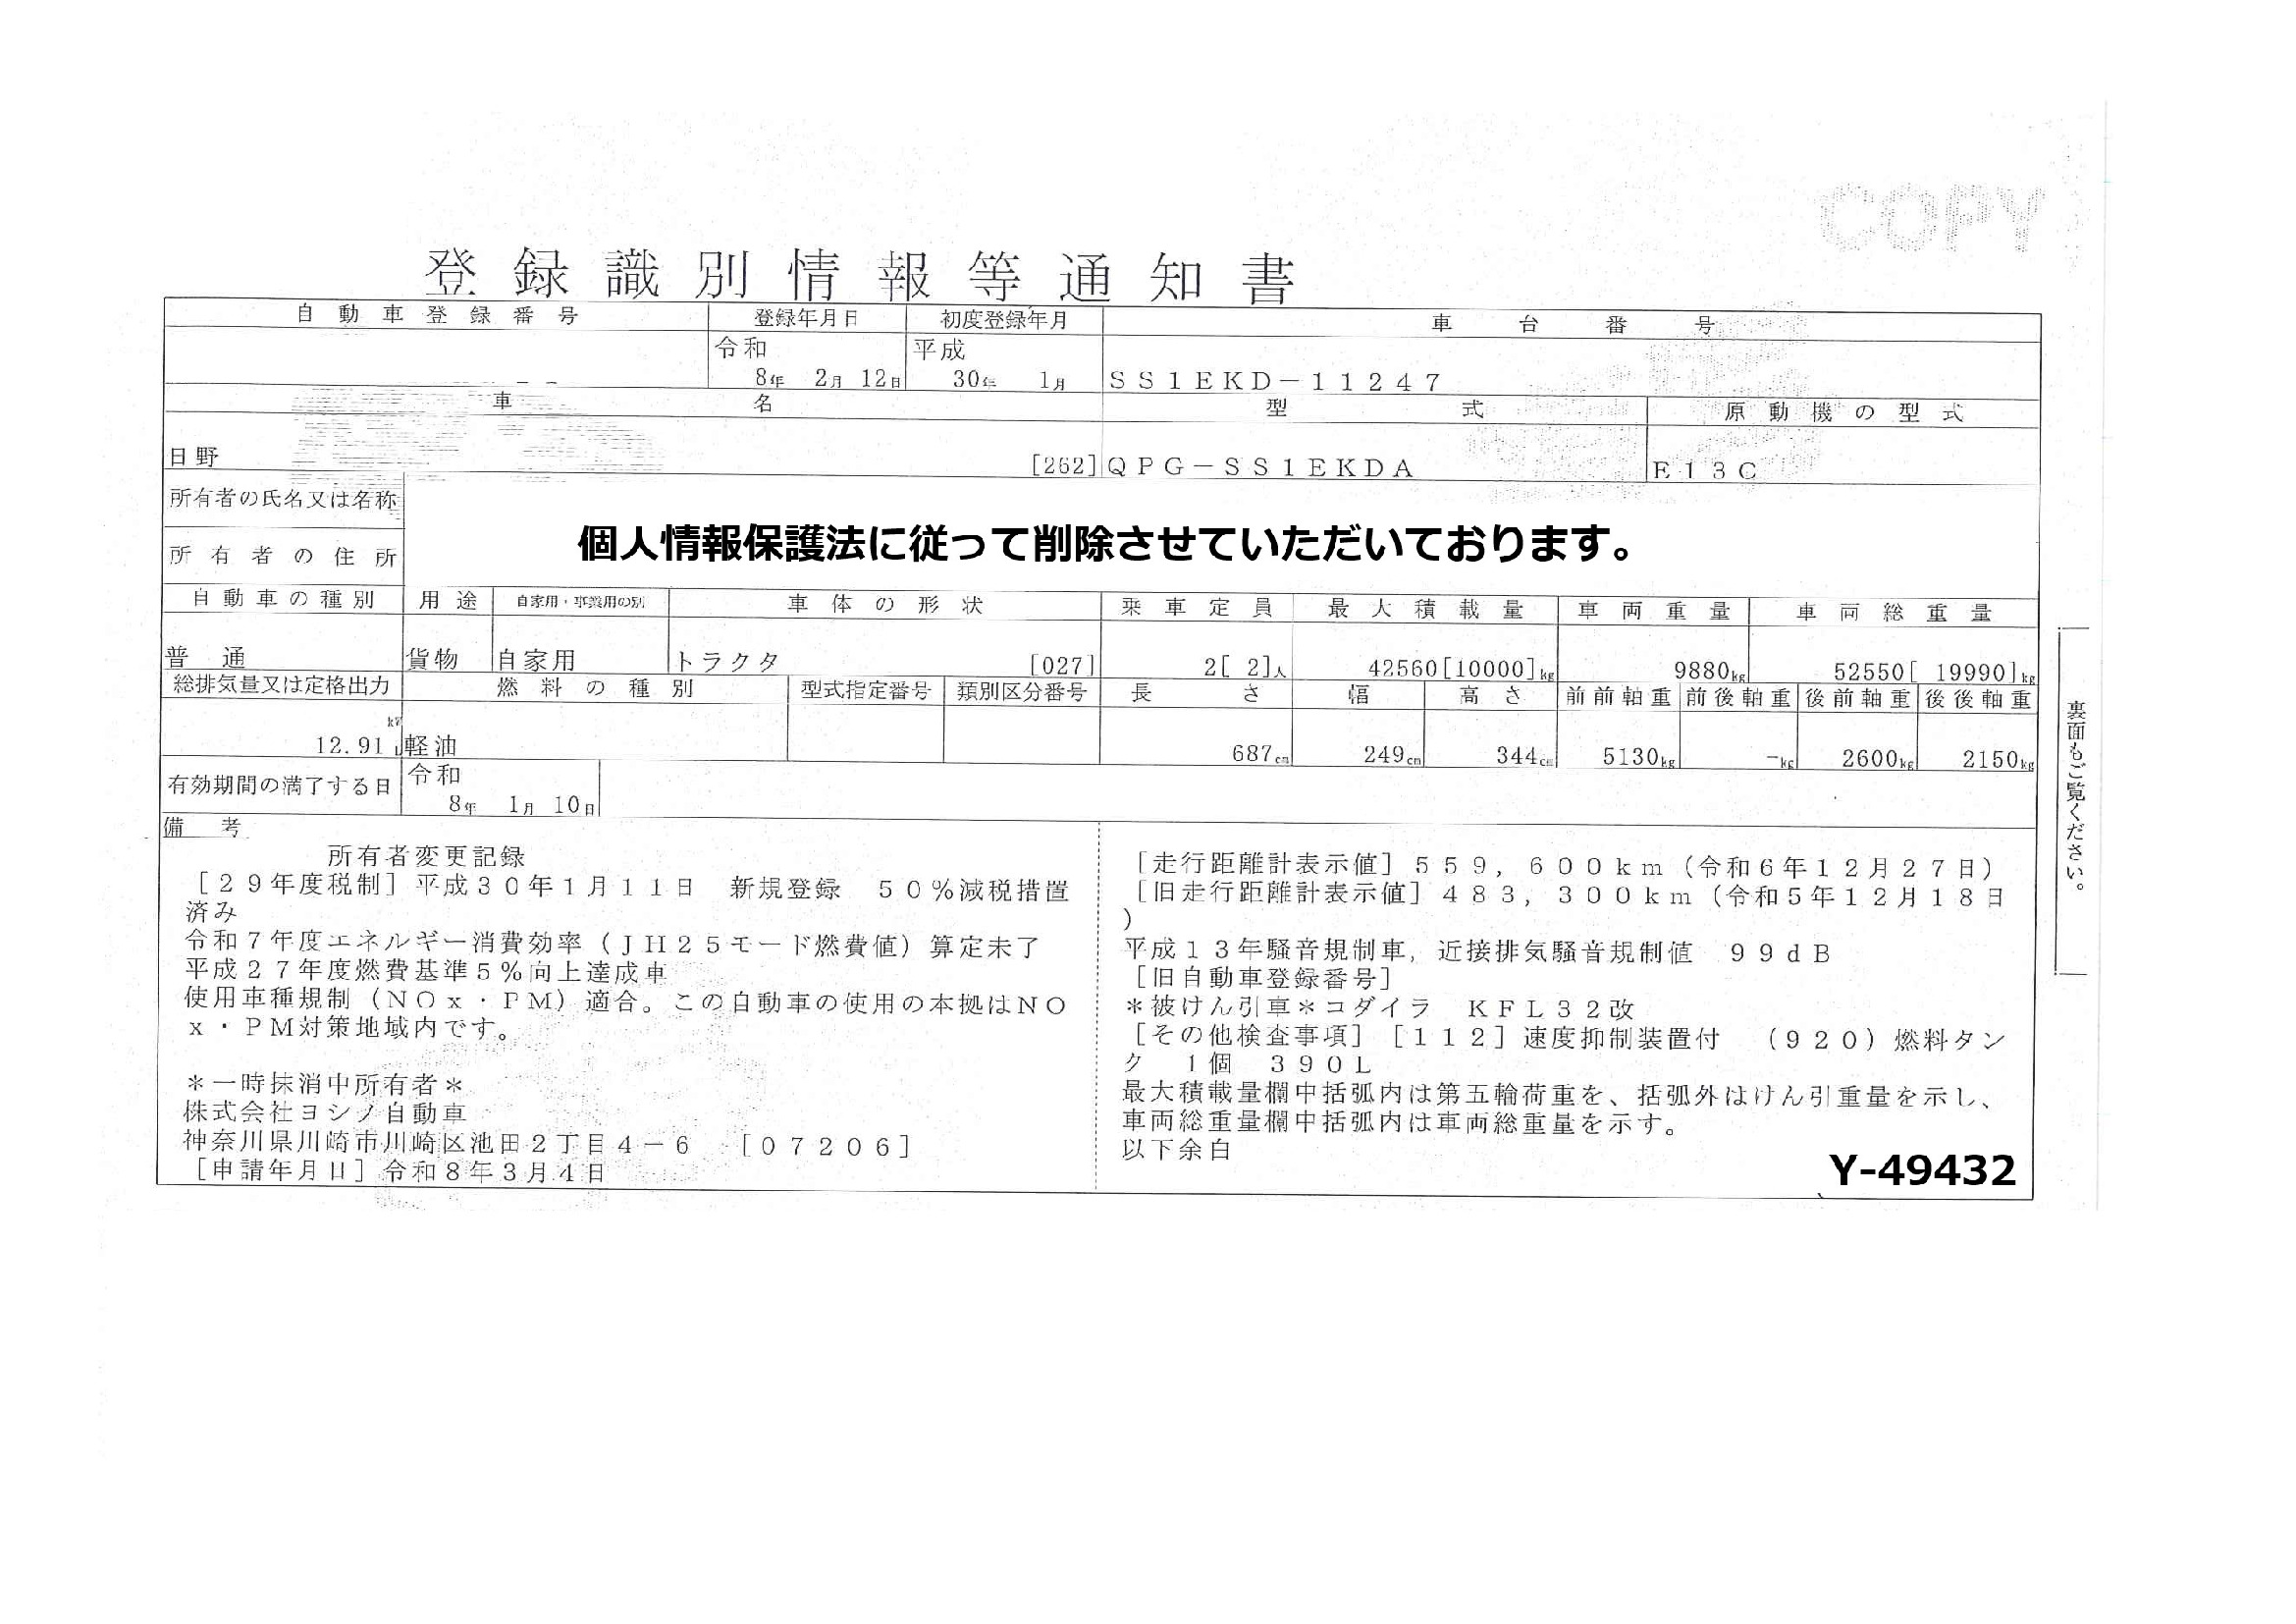 COPY
登録識別情報等通知書
自動車登録番号 登録年月日 初度登録年月 車台番号
令和 平成
8年 2月 12日 30年 1月 SS1EKD-11247
車名 型式 原動機の型式
日野 [262] QPG-SS1EKDA E13C
所有者の氏名又は名称
個人情報保護法に従って削除させていただいております。
所有者の住所
自動車の種別 用途 自家用・事業用の別 車体の形状 乗車定員 最大積載量 車両重量 車両総重量
普通 貨物 自家用 トラクタ [027] 2[ 2]人 42560[10000]kg 9880kg 52550[ 19990]kg
総排気量又は定格出力 燃料の種別 型式指定番号 類別区分番号 長さ 幅 高さ 前前軸重 前後軸重 後前軸重 後後軸重
kW
12.91 L 軽油 687cm 249cm 344cm 5130kg -kg 2600kg 2150kg
有効期間の満了する日 令和
8年 1月 10日
備考
所有者変更記録
[29年度税制]平成30年1月11日 新規登録 50%減税措置
済み
令和7年度エネルギー消費効率(JH25モード燃費値)算定未了
平成27年度燃費基準5%向上達成車
使用車種規制(NOx・PM)適合。この自動車の使用の本拠はNO
x・PM対策地域内です。
*一時抹消中所有者*
株式会社ヨシノ自動車
神奈川県川崎市川崎区池田2丁目4-6 [07206]
[申請年月日]令和8年3月4日
[走行距離計表示値]559,600km(令和6年12月27日)
[旧走行距離計表示値]483,300km(令和5年12月18日
)
平成13年騒音規制車,近接排気騒音規制値 99dB
[旧自動車登録番号]
*被けん引車*コダイラ KFL32改
[その他検査事項][112]速度抑制装置付 (920)燃料タン
ク 1個 390L
最大積載量欄中括弧内は第五輪荷重を、括弧外はけん引重量を示し、
車両総重量欄中括弧内は車両総重量を示す。
以下余白
Y-49432
裏面もご覧ください。